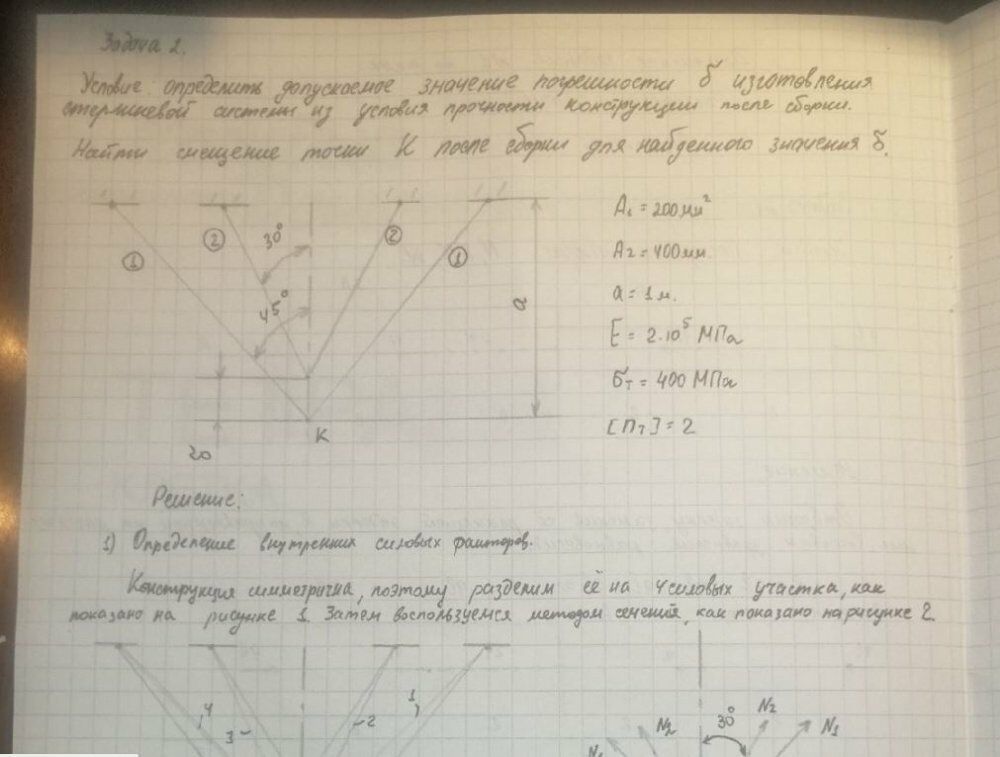 Задача 2.
Условие определить допускаемое значение погрешности δ изготовления
стержневой системы из условия прочности конструкции после сборки.
Найти смещение точки К после сборки для найденного значения δ.
① ② 30° ② ①
45°
a
К
20
A₁ = 200 мм²
A₂ = 400 мм.
a = 1 м.
E = 2·10⁵ МПа
σт = 400 МПа
[nт] = 2
Решение:
1) Определение внутренних силовых факторов.
Конструкция симметрична, поэтому разделим её на 4 силовых участка, как
показано на рисунке 1. Затем воспользуемся методом сечений, как показано на рисунке 2.
4 3 2 1
N₂ 30° N₂ N₁
N₁